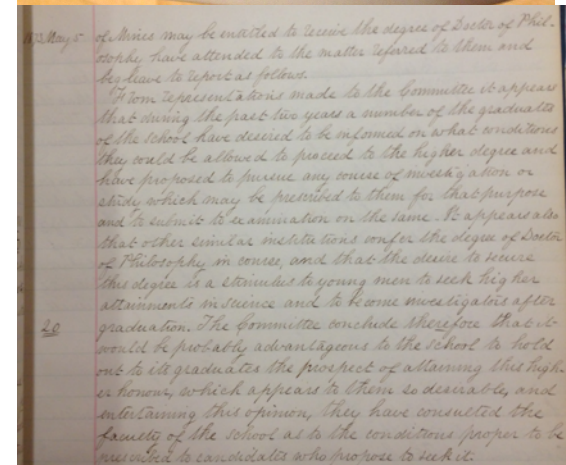 1873 May 5 of Mines may be entitled to receive the degree of Doctor of Phil-
osophy have attended to the matter referred to them and
beg leave to report as follows.
From representations made to the Committee it appears
that during the past two years a number of the graduates
of the school have desired to be informed on what conditions
they could be allowed to proceed to the higher degree and
have proposed to pursue any course of investigation or
study which may be prescribed to them for that purpose
and to submit to examination on the same. It appears also
that other similar institutions confer the degree of Doctor
of Philosophy in course, and that the desire to secure
this degree is a stimulus to young men to seek higher
attainments in science and to become investigators after
20 graduation. The Committee conclude therefore that it
would be probably advantageous to the school to hold
out to its graduates the prospect of attaining this high-
er honour, which appears to them so desirable, and
entertaining this opinion, they have consulted the
faculty of the school as to the conditions proper to be
prescribed to candidates who propose to seek it.